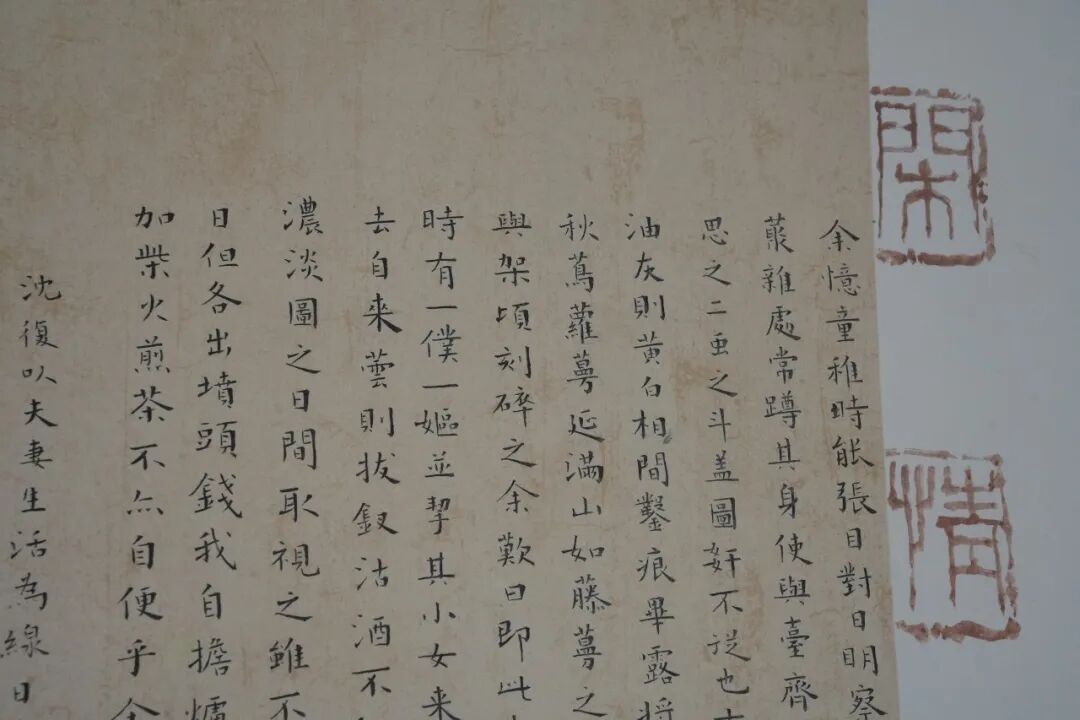 閑
情
余憶童稚時能張目對日明察
蕞雜處常蹲其身使與臺齊
思之二蟲之斗盖圖奸不從也
油灰則黄白相間鑿痕畢露将
秋蔦蘿蔓延滿山如藤蔓之
與架頃刻碎之余歎曰即此
時有一僕一嫗並挈其小女来
去自来芸則拔釵沽酒不
濃淡圖之日間取視之雖不
日但各出墳頭錢我自擔爐
加柴火煎茶不亦自便乎余
沈復以夫妻生活為線日